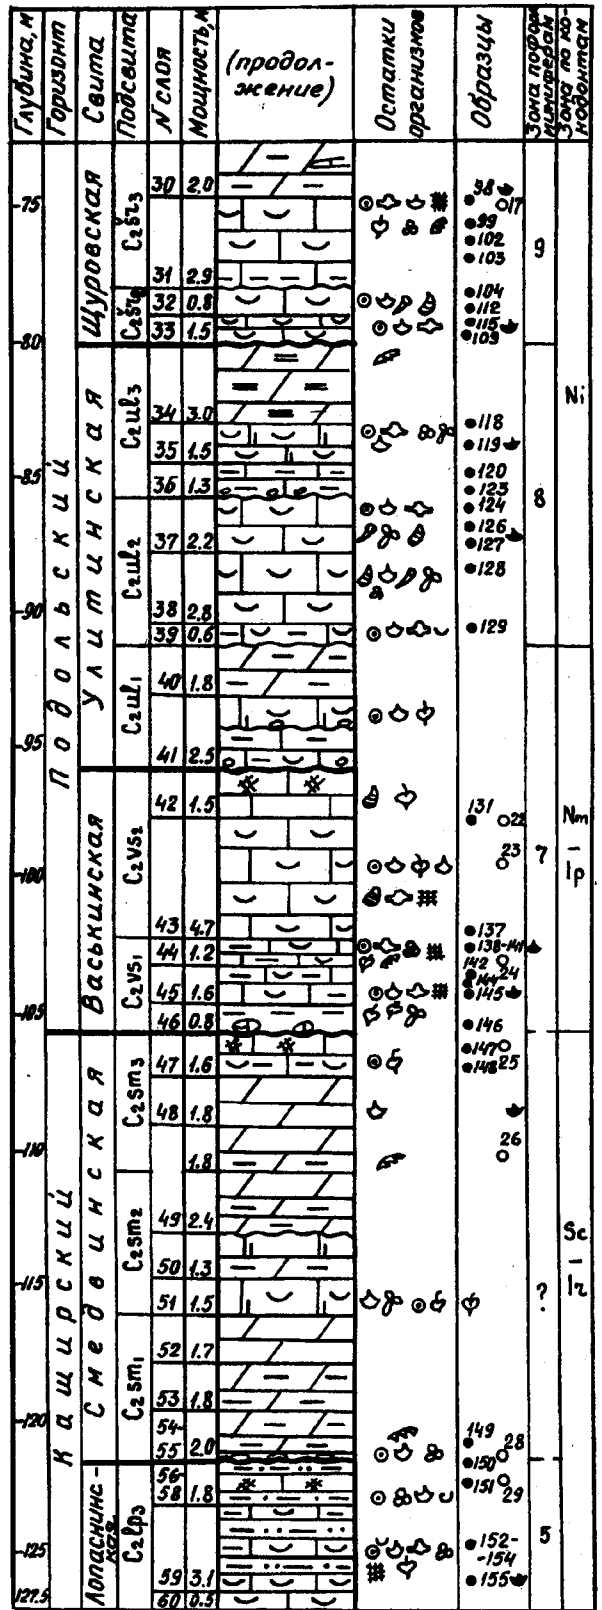 Глубина, м
Горизонт
Свита
Подсвита
N слоя
Мощность, м
(продол-
жение)
Остатки
организмов
Образцы
Зона по фора-
миниферам
Зона по ко-
нодонтам
-75
-80
-85
-90
-95
-100
-105
-110
-115
-120
-125
127.5
Подольский
Каширский
Щуровская
Улитинская
Васькинская
Смедвинская
Лопаснинс-
кая
C₂šr₃
C₂šr₂
C₂ul₃
C₂ul₂
C₂ul₁
C₂vs₂
C₂vs₁
C₂sm₃
C₂sm₂
C₂sm₁
C₂lp₃
30 2.0
31 2.9
32 0.8
33 1.5
34 3.0
35 1.5
36 1.3
37 2.2
38 2.8
39 0.6
40 1.8
41 2.5
42 1.5
43 4.7
44 1.2
45 1.6
46 0.8
47 1.6
48 1.8
1.8
49 2.4
50 1.3
51 1.5
52 1.7
53 1.8
54-
55 2.0
56-
58 1.8
59 3.1
60 0.5
98
17
99
102
103
104
112
115
109
118
119
120
123
124
126
127
128
129
131
22
23
137
138-141
142
24
144
145
146
147
148 25
26
149
28
150
151
29
152-
-154
155
9
8
7
?
5
Ni
Nm
-
Ip
Sc
-
Iz